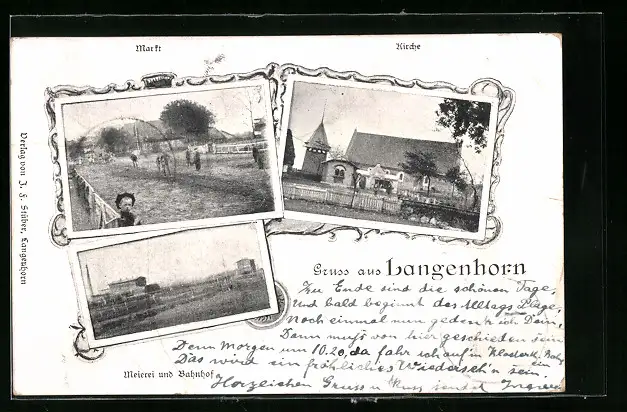 Markt
Kirche
Verlag von J. F. Stüber, Langenhorn
Gruss aus Langenhorn
Zu Ende sind die schönen Tage,
Und bald beginnt des Alltags Plage,
Noch einmal nun gedenk ich Dein,
Dann muß von hier geschieden sein
Denn morgen um 10.20, da fahr ich auf in Klosterk. Bahn ein
Das wird ein fröhliches Wiederseh'n sein.
Meierei und Bahnhof
Herzlichen Gruss u. Kuss sendet